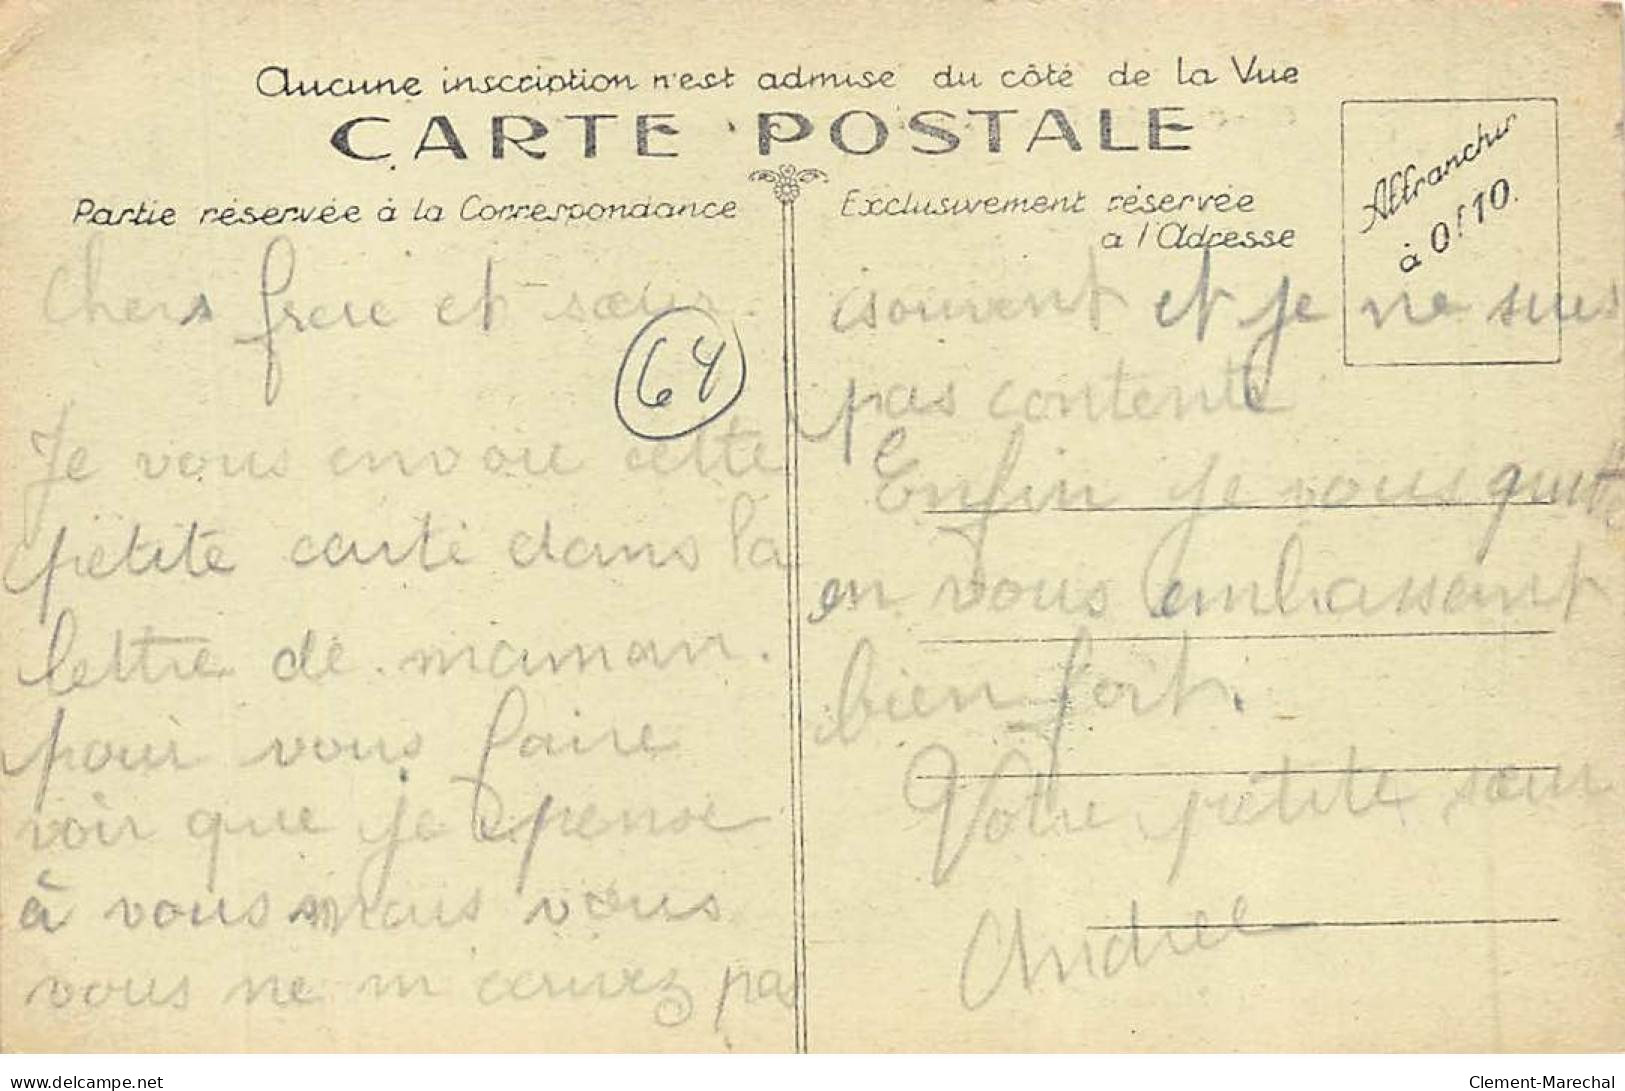 Aucune inscription n'est admise du côté de la Vue
CARTE POSTALE
Affranchir
à 0f10.
Partie réservée à la Correspondance
Exclusivement réservée
a l'Adresse
64
Chers frere et sœur.
Je vous envoie cette
petite carte dans la
lettre de maman.
pour vous faire
voir que je pense
à vous mais vous
vous ne m'ecrivez pas
souvent et je ne suis
pas contente
Enfin je vous quitte
en vous embassant
bien fort.
Votre petite sœur
Andree
delcampe.net
Clement-Marechal